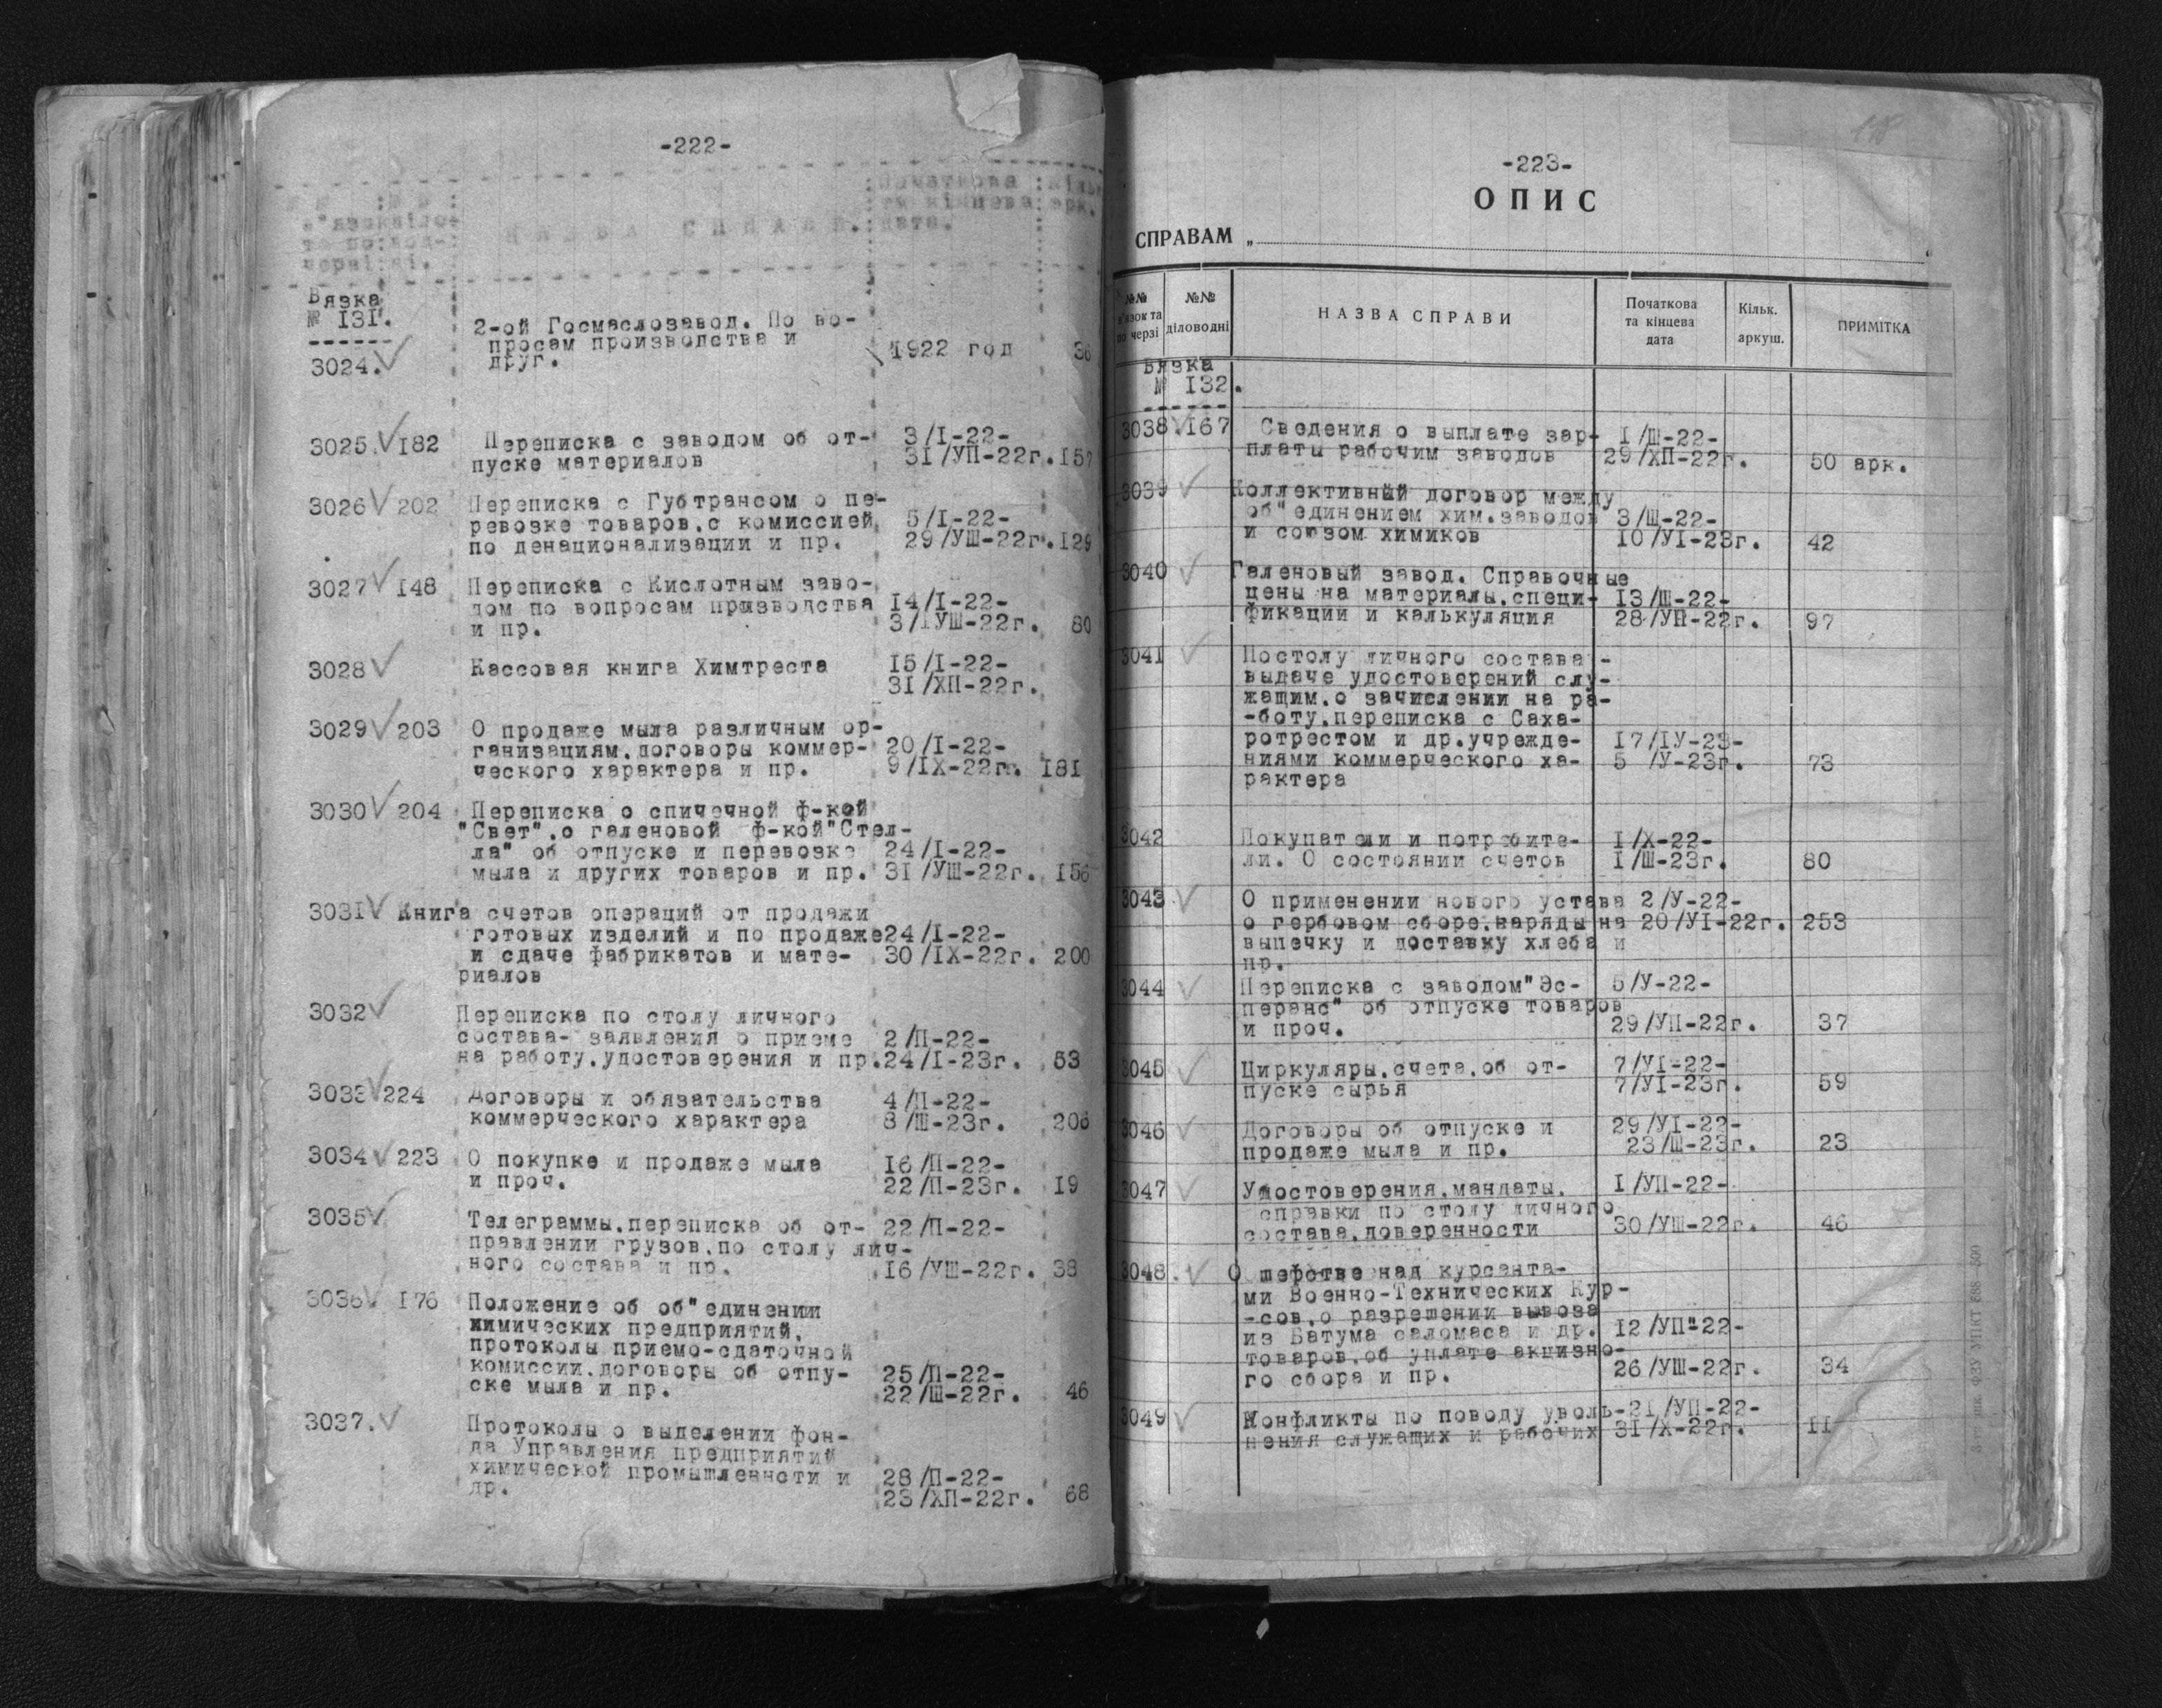 -222-
Початкова
та кінцева
дата.
НАЗВА СПРАВИ.
Вязка
№ 131.
3024. 2-ой Госмаслозавод. По во-
просам производства и
друг. 1922 год 36
3025. 182 Переписка с заводом об от- 3/I-22-
пуске материалов 31/УП-22г. 157
3026 202 Переписка с Губтрансом о пе-
ревозке товаров, с комиссией 5/I-22-
по денационализации и пр. 29/УШ-22г. 129
3027 148 Переписка с Кислотным заво-
дом по вопросам производства 14/I-22-
и пр. 3/IУШ-22г. 80
3028 Кассовая книга Химтреста 15/I-22-
31/ХП-22г.
3029 203 О продаже мыла различным ор-
ганизациям, договоры коммер- 20/I-22-
ческого характера и пр. 9/IX-22г. 181
3030 204 Переписка о спичечной ф-кой
"Свет", о галеновой ф-кой "Стел-
ла" об отпуске и перевозке 24/I-22-
мыла и других товаров и пр. 31/УШ-22г. 156
3031 Книга счетов операций от продажи
готовых изделий и по продаже 24/I-22-
и сдаче фабрикатов и мате- 30/IX-22г. 200
риалов
3032 Переписка по столу личного
состава- заявления о приеме 2/П-22-
на работу, удостоверения и пр. 24/I-23г. 53
3033 224 Договоры и обязательства 4/П-22-
коммерческого характера 8/Ш-23г. 206
3034 223 О покупке и продаже мыла 16/П-22-
и проч. 22/П-23г. 19
3035 Телеграммы, переписка об от- 22/П-22-
правлении грузов, по столу лич-
ного состава и пр. 16/УШ-22г. 38
3036 176 Положение об об"единении
химических предприятий,
протоколы приемо-сдаточной
комиссии, договоры об отпу- 25/П-22-
ске мыла и пр. 22/Ш-22г. 46
3037. Протоколы о выделении фон-
да Управления предприятий
химической промышленности и 28/П-22-
др. 23/ХП-22г. 68
-223-
ОПИС
СПРАВАМ „
№№ №№ НАЗВА СПРАВИ Початкова Кільк. ПРИМІТКА
в'язок та діловодні та кінцева аркуш.
по черзі дата
Вязка
№ 132.
3038 167 Сведения о выплате зар- 1/Ш-22-
платы рабочим заводов 29/ХП-22г. 50 арк.
3039 Коллективный договор между
об"единением хим. заводов 3/Ш-22-
и союзом химиков 10/УI-23г. 42
3040 Галеновый завод. Справочные
цены на материалы, специ- 13/Ш-22-
фикации и калькуляция 28/УП-22г. 97
3041 Постолу личного состава -
выдаче удостоверений слу-
жащим, о зачислении на ра-
-боту, переписка с Саха-
ротрестом и др. учрежде- 17/IУ-23-
ниями коммерческого ха- 5 /У-23г. 73
рактера
3042 Покупатели и потребите- 1/X-22-
ли. О состоянии счетов 1/Ш-23г. 80
3043 О применении нового устава 2/У-22-
о гербовом сборе, наряды на 20/УI-22г. 253
выпечку и доставку хлеба и
пр.
3044 Переписка с заводом "Эс- 5/У-22-
перанс" об отпуске товаров
и проч. 29/УП-22г. 37
3045 Циркуляры, счета, об от- 7/УI-22-
пуске сырья 7/УI-23г. 59
3046 Договоры об отпуске и 29/УI-22-
продаже мыла и пр. 23/Ш-23г. 23
3047 Удостоверения, мандаты, 1/УП-22-
справки по столу личного
состава, доверенности 30/УШ-22г. 46
3048. О шефстве над курсанта-
ми Военно-Технических Кур-
-сов, о разрешении вывоза
из Батума саломаса и др. 12/УП-22-
товаров, об уплате акцизно-
го сбора и пр. 26/УШ-22г. 34
3049 Конфликты по поводу уволь- 21/УП-22-
нения служащих и рабочих 31/X-22г. 11